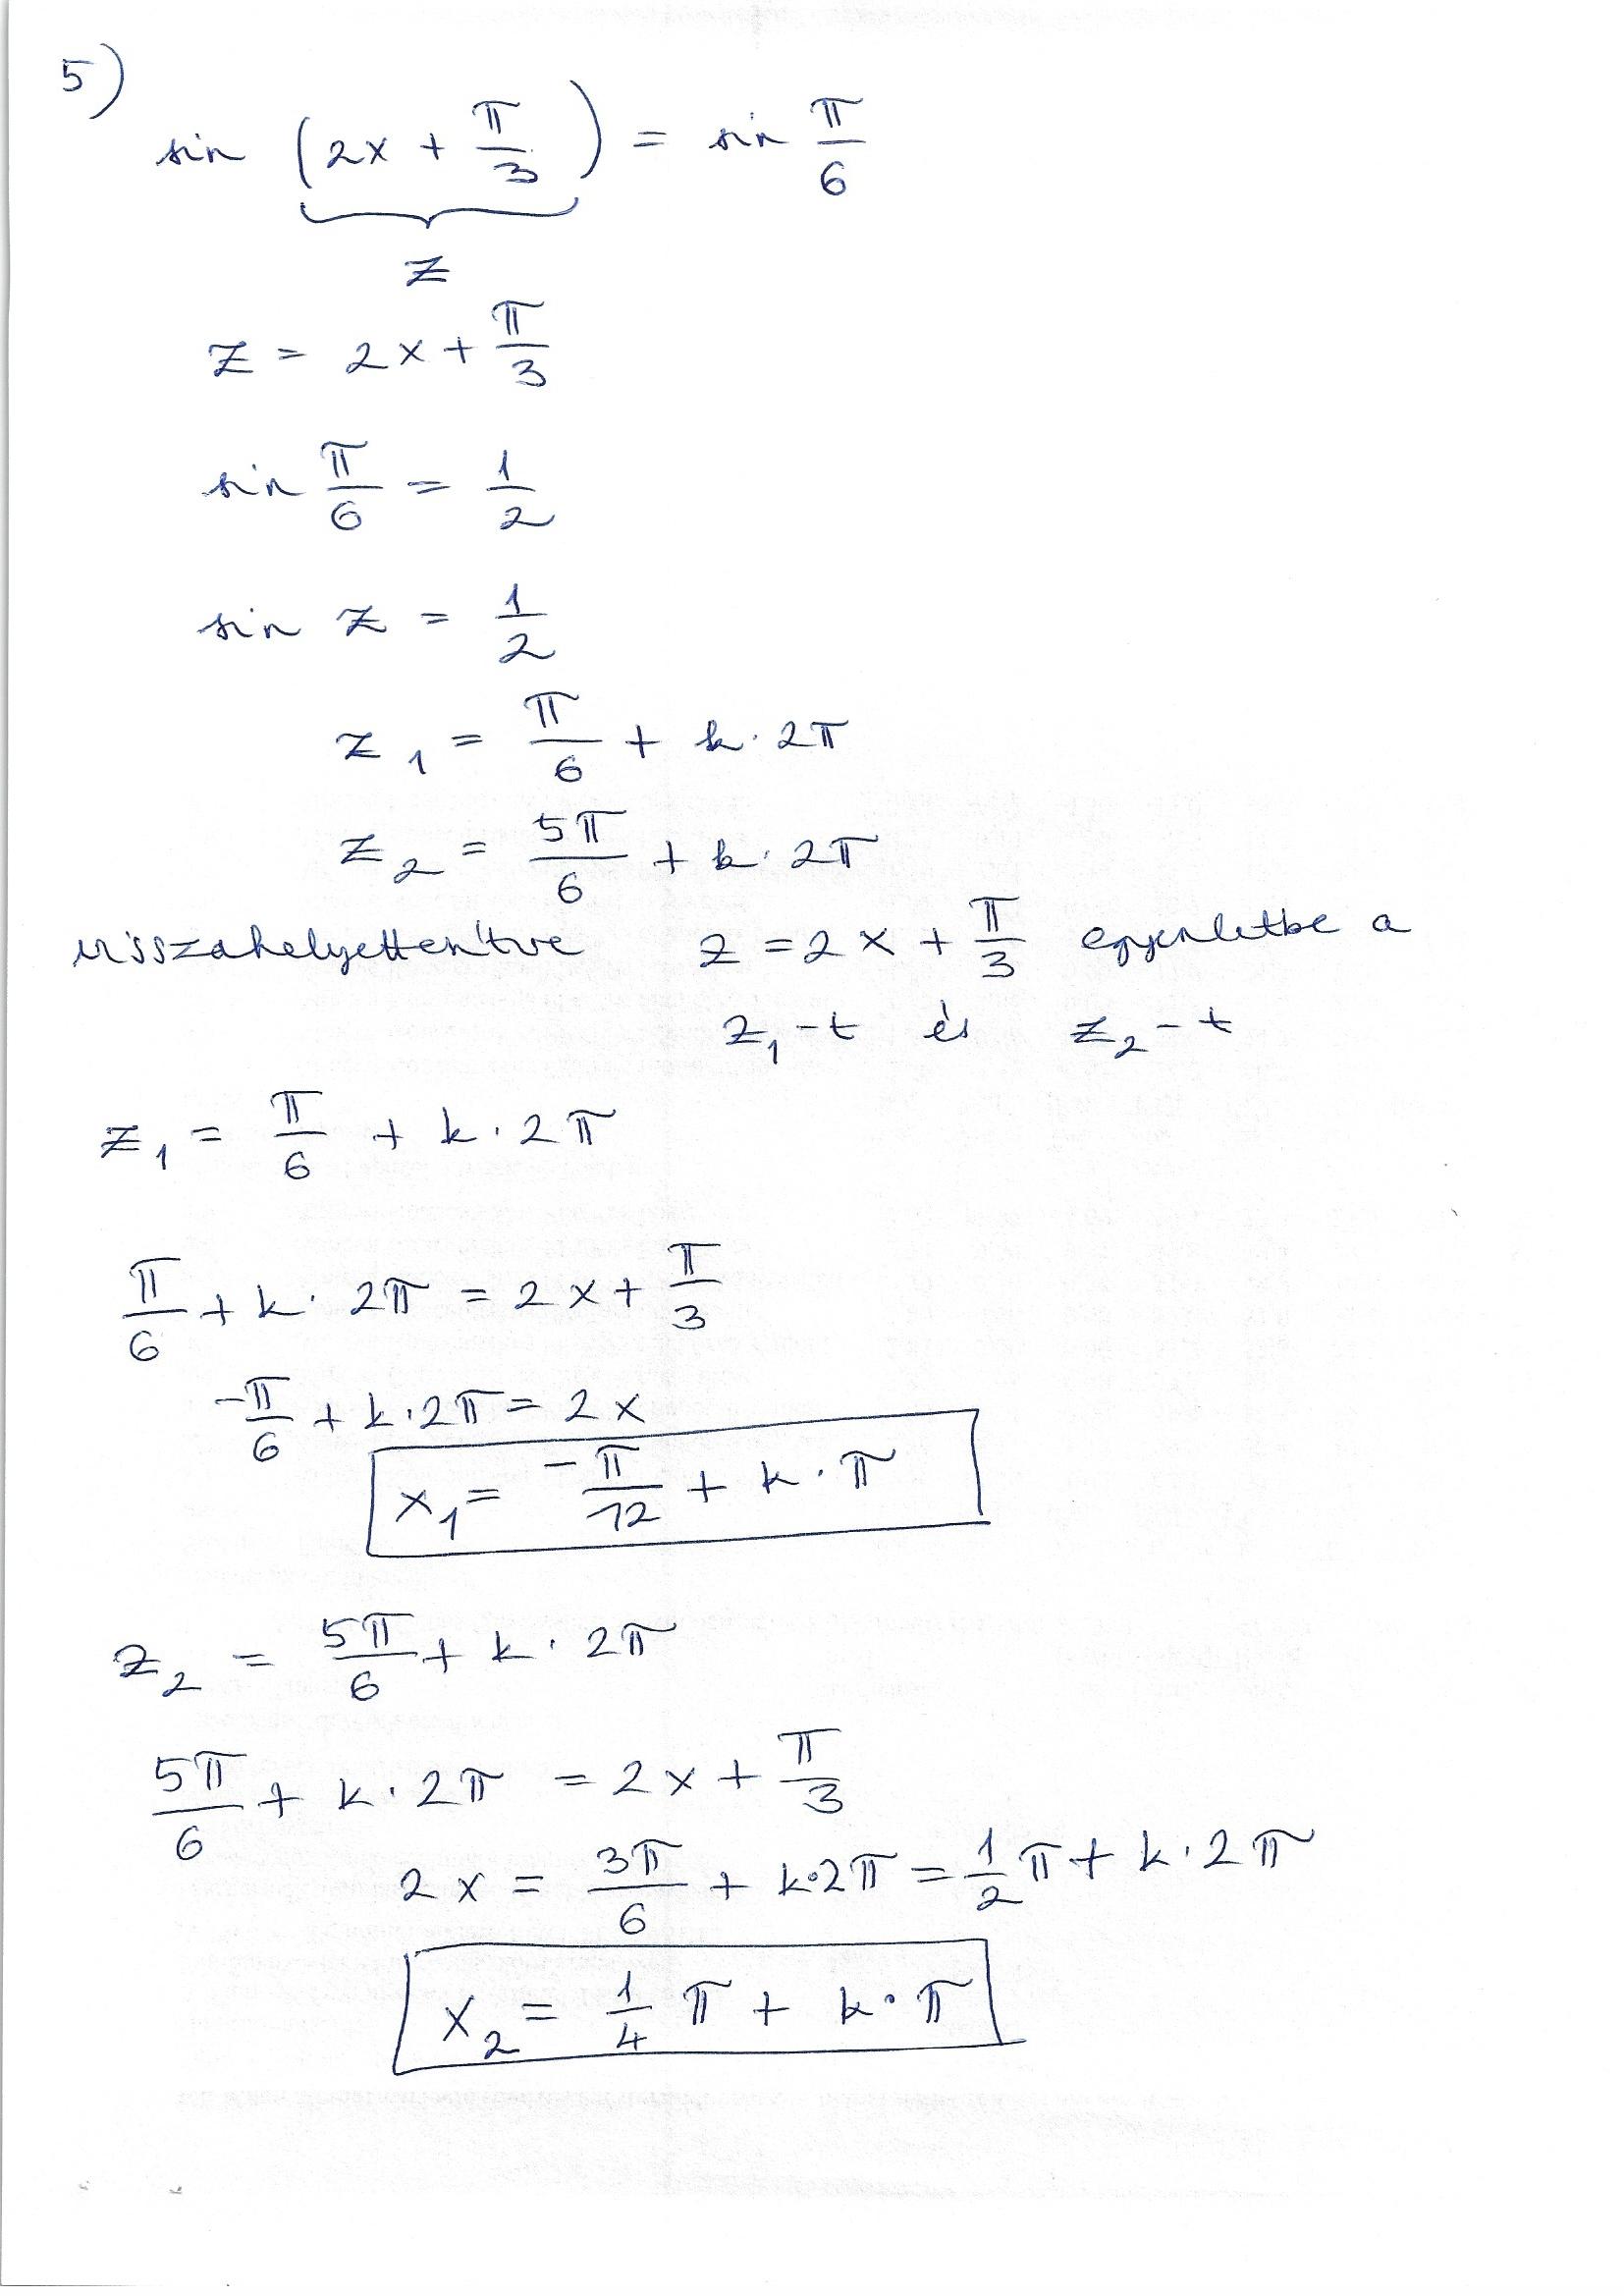 5)
sin (2x + π/3) = sin π/6
z
z = 2x + π/3
sin π/6 = 1/2
sin z = 1/2
z₁ = π/6 + k·2π
z₂ = 5π/6 + k·2π
visszahelyettesítve z = 2x + π/3 egyenletbe a
z₁-t és z₂-t
z₁ = π/6 + k·2π
π/6 + k·2π = 2x + π/3
-π/6 + k·2π = 2x
x₁ = -π/12 + k·π
z₂ = 5π/6 + k·2π
5π/6 + k·2π = 2x + π/3
2x = 3π/6 + k·2π = 1/2 π + k·2π
x₂ = 1/4 π + k·π